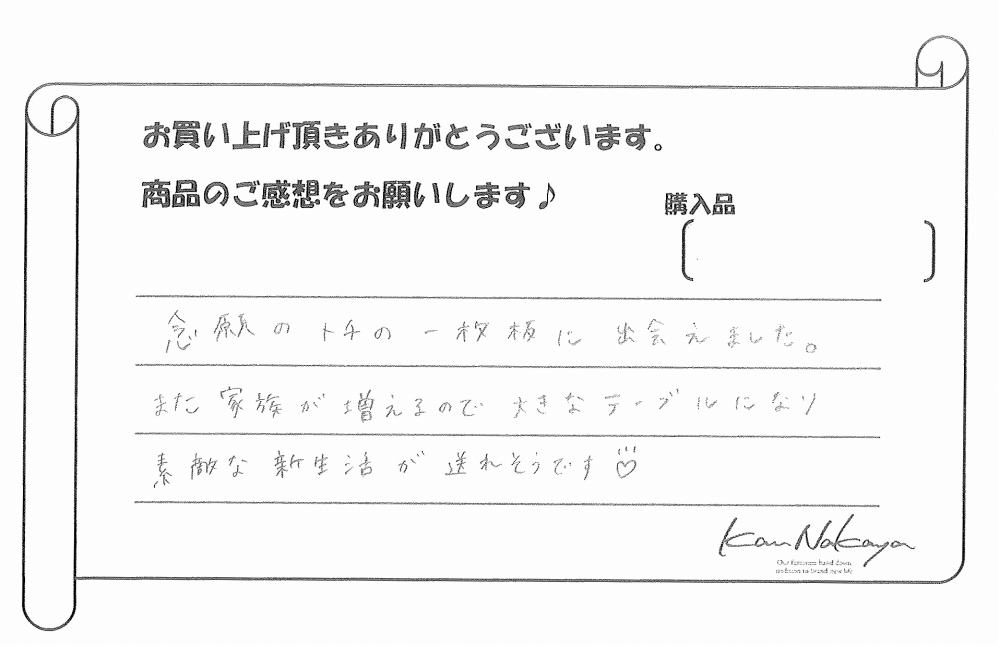 お買い上げ頂きありがとうございます。
商品のご感想をお願いします♪
購入品
念願のトチの一枚板に出会えました。
また家族が増えるので大きなテーブルになり
素敵な新生活が送れそうです♡
Kan Nakaya
Our furniture hand down